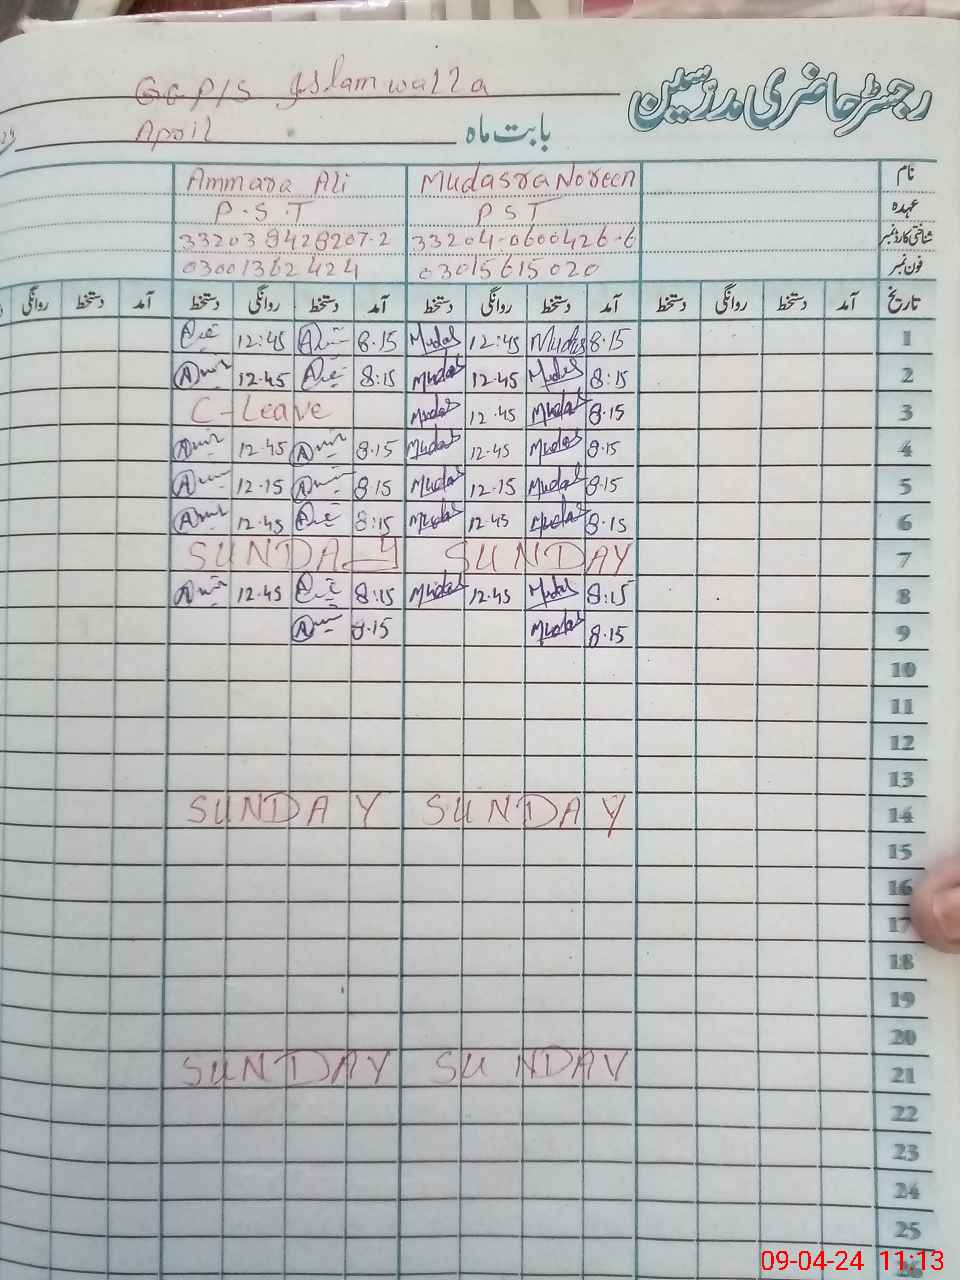 رجسٹر حاضری مدرسین
GGP/S Islamwalla
بابت ماہ April
نام Mudasra Noreen Ammara Ali
عہدہ PST P.S.T
شناختی کارڈ نمبر 33204-0600426-6
فون نمبر 03015615020 03001362424
تاریخ آمد دستخط روانگی دستخط آمد دستخط روانگی دستخط آمد دستخط روانگی دستخط آمد دستخط روانگی
1 8.15 Mudas 12:45 Mudas 8.15 12:45
2 8:15 Mudas 12.45 Mudas 8:15 12.45
3 8.15 Mudas 12.45 Mudas C-Leave
4 8.15 Mudas 12.45 Mudas 8.15 12.45
5 8.15 Mudas 12.15 Mudas 8.15 12.15
6 8.15 Mudas 12.45 Mudas 8:15 12.45
7 SUNDAY SUNDAY
8 8:15 Mudas 12.45 Mudas 8:15 12.45
9 8.15 Mudas 8.15
10
11
12
13
14 SUNDAY SUNDAY
15
16
17
18
19
20
21 SUNDAY SUNDAY
22
23
24
25
26
09-04-24 11:13